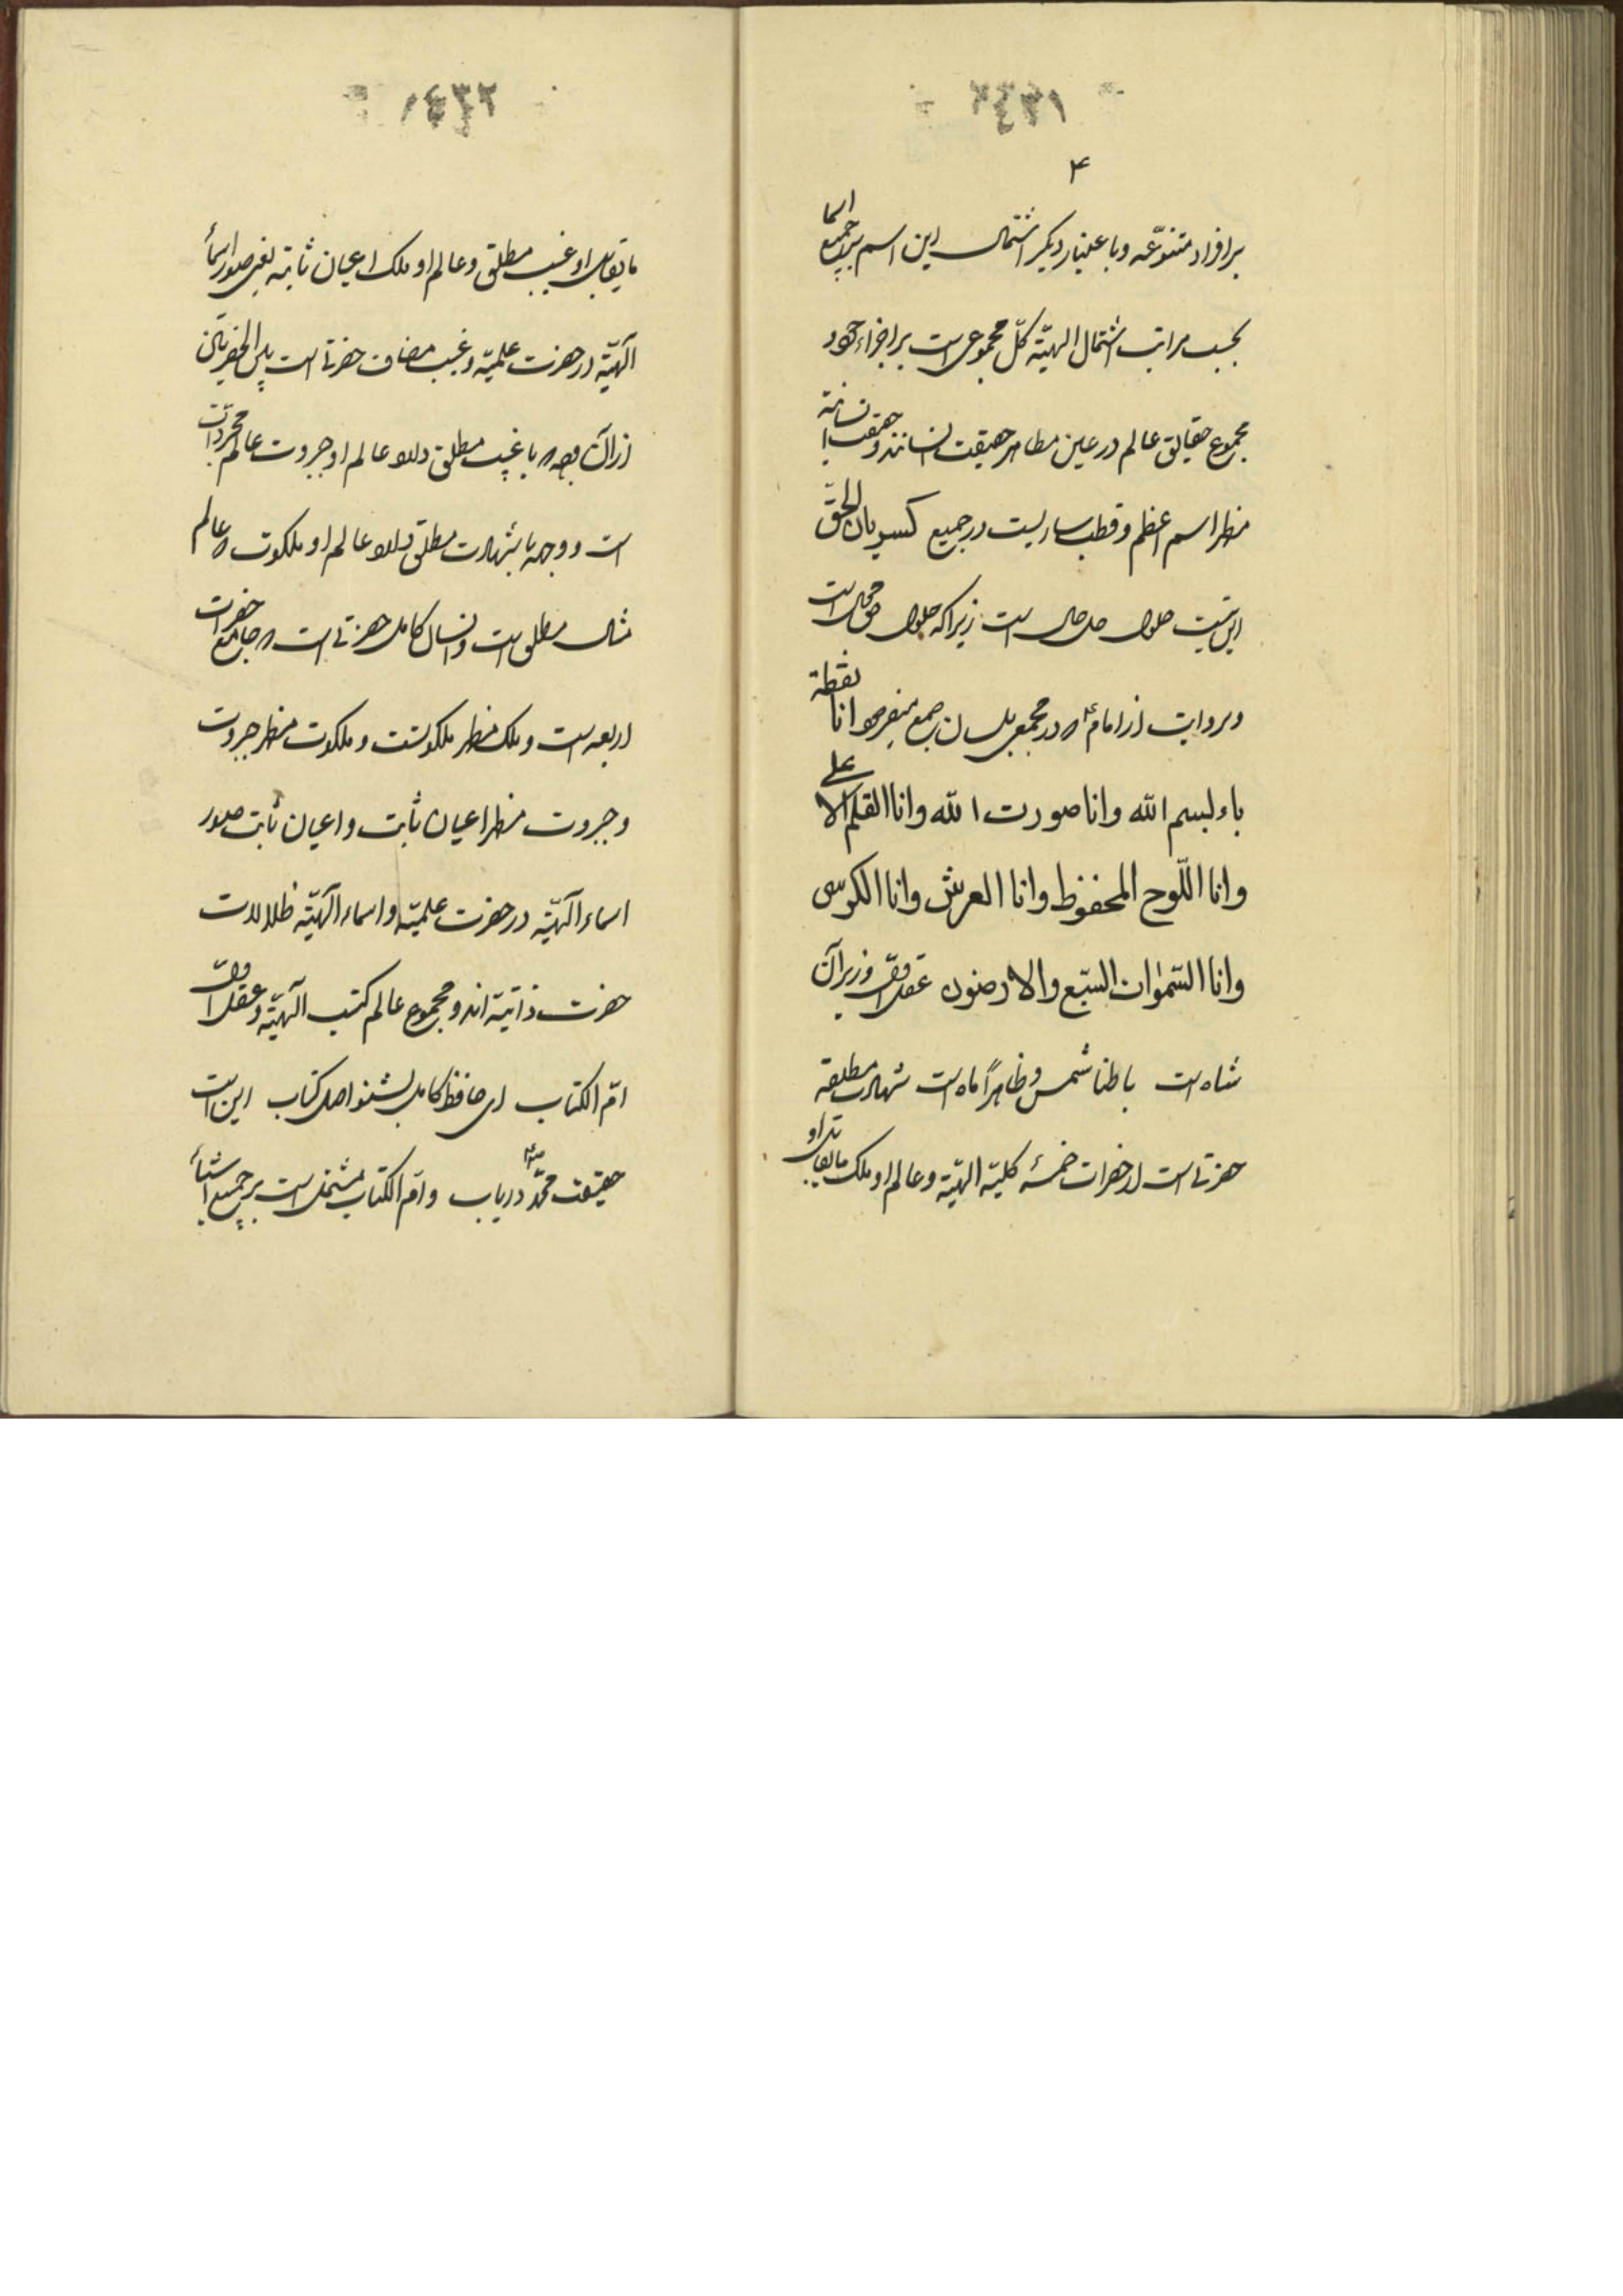 ۴
بر افراد متنوّعه و باعتبار دیکر اشتمال این اسم بر جمیع اسما
بحسب مراتب اشتمال الهیّه کلّ مجموعی است بر اجزاء خود
مجموع حقایق عالم در عین مظاهر حقیقت انسانند و حقیقت انسانیة
مظهر اسم اعظم و قطب ساریست در جمیع کسریان الحق
این نیست حلول حال است زیرا که حلول محال است
و روایت از امام که در مجمعی بلسان جمع میفرمود انا نقطة
باء بسم الله وانا صورت الله وانا القلم الاعلی
وانا اللّوح المحفوظ وانا العرش وانا الکرسی
وانا السّمٰوات السّبع والارضون عقل اوّل وزیر آن
شاه است باطنا شمس و ظاهراً ماه است شهادت مطلقه
حضرتی است از حضرات خمسهٔ کلیّه الهیّه و عالم او ملک مایقابل او
مایقابل او غیب مطلق و عالم او ملک اعیان ثابته یعنی صور اسمآء
الٓهیّه در حضرت علمیّه و غیب مضاف حضرتی است بین الحضرتین
از آن وجه که با غیب مطلق دارد عالم او جبروت عالم مجردات
است و وجهی با شهادت مطلق دارد عالم او ملکوت که عالم
مثال مطلق است و انسان کامل حضرتی است که جامع حضرات
اربعه است و ملک مظهر ملکوتست و ملکوت مظهر جبروت
و جبروت مظهر اعیان ثابت و اعیان ثابت صور
اسماء الٓهیّه در حضرت علمیّه و اسماء الٓهیّه ظلالات
حضرت ذاتیّه اند و مجموع عالم کتب الٓهیّه و عقل اوّل
امّ الکتاب ای حافظ کامل بشنو اصل کتاب این است
حقیقت محمّد دریاب و امّ الکتاب مشتمل است بر جمیع اشیآء